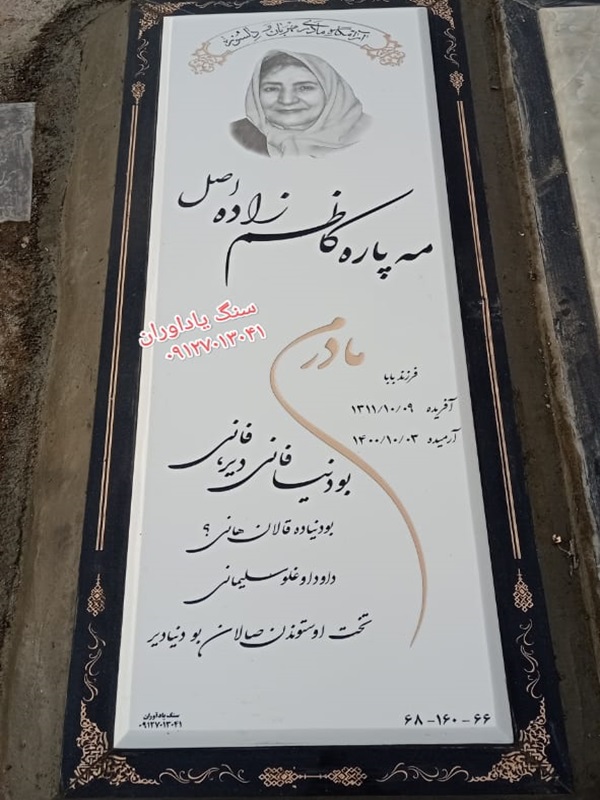 آرامگاه مادری مهربان و دلسوز
مه پاره کاظم زاده اصل
سنگ یادآوران
۰۹۱۲۷۰۱۳۰۴۱
مادرم
فرزند بابا
آفریده ۱۳۱۱/۱۰/۰۹
آرمیده ۱۴۰۰/۱۰/۰۳
بو دنیا فانی دیر، فانی
بو دنیاده قالان هانی ؟
داود اوغلو سلیمانی
تخت اوستوندن صالان بو دنیادیر
۶۸-۱۶۰-۶۶
سنگ یادآوران
۰۹۱۲۷۰۱۳۰۴۱